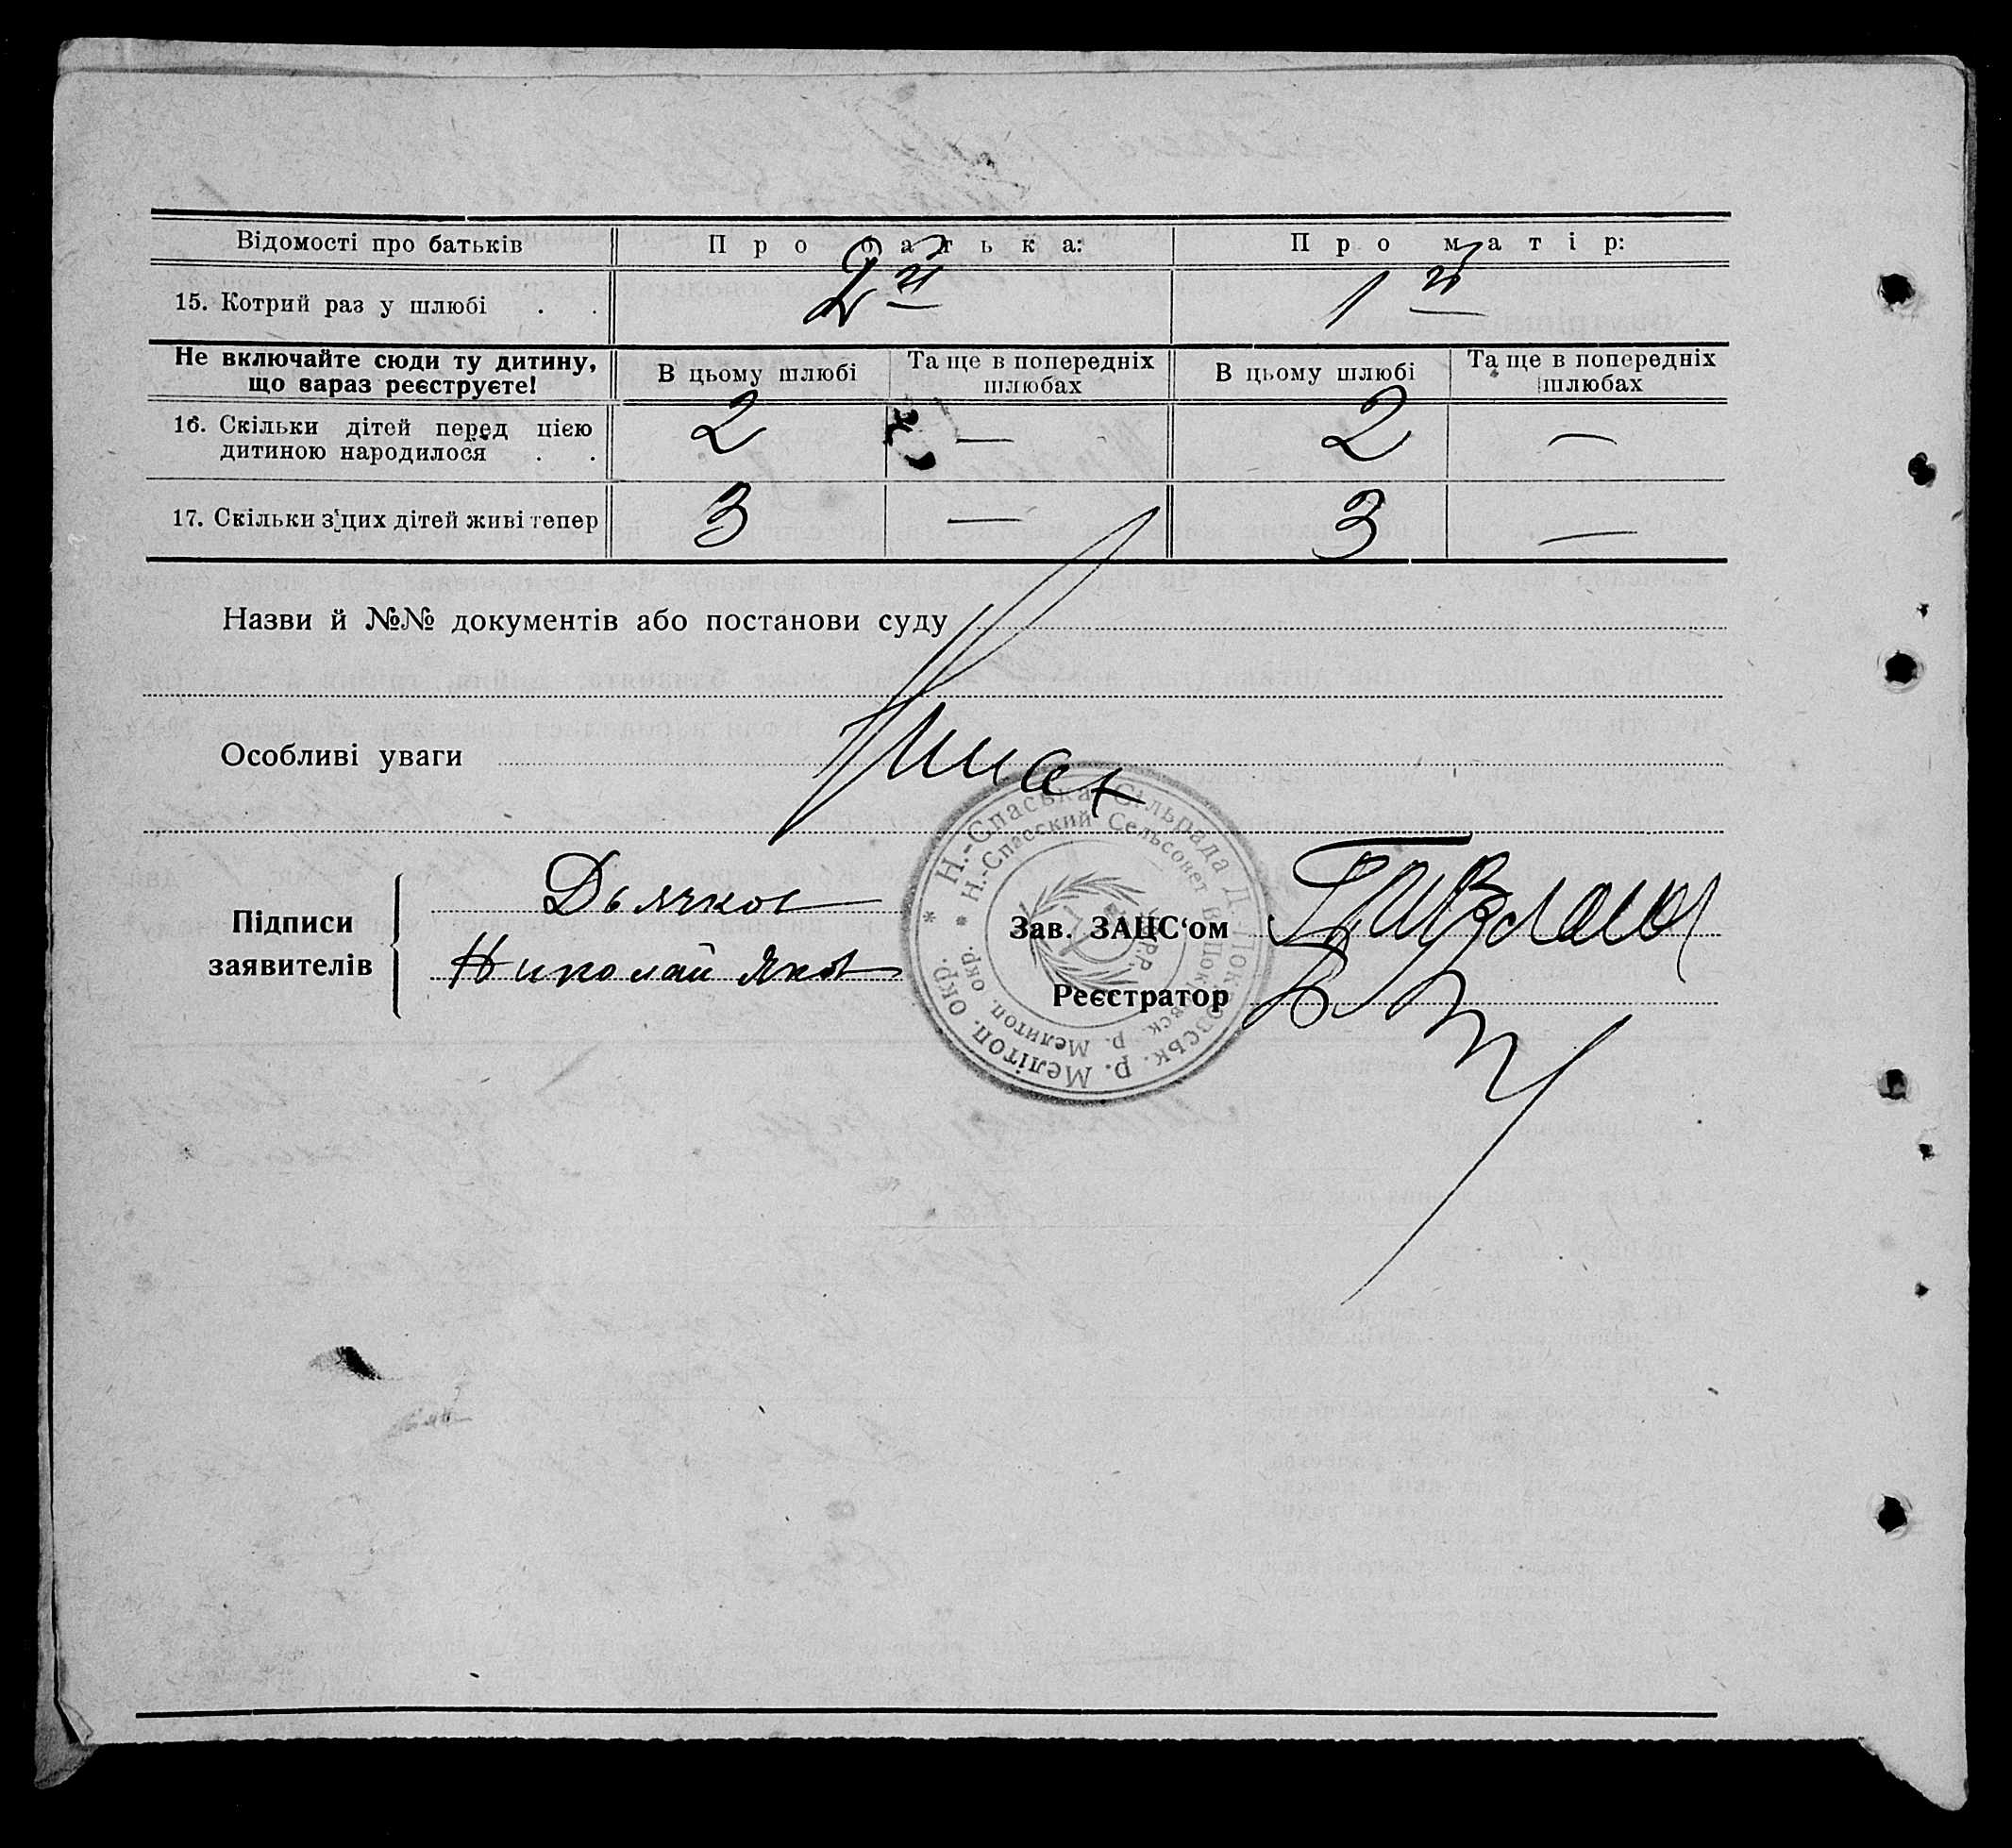 Відомості про батьків Про батька: Про матір:
15. Котрий раз у шлюбі . . 2й 1й
Не включайте сюди ту дитину, що зараз реєструєте! В цьому шлюбі Та ще в попередніх шлюбах В цьому шлюбі Та ще в попередніх шлюбах
16. Скільки дітей перед цією
дитиною народилося . . 2 — 2 —
17. Скільки з цих дітей живі тепер 3 — 3 —
Назви й №№ документів або постанови суду
Особливі уваги
Підписи заявителів
Дьячков
Николай Яков
Н.-Спаська Сільрада Д.-Покровськ. р. Мелітоп. окр.
Н.-Спасский Сельсовет В.-Покровск. р. Мелитоп. окр.
УСРР.
Зав. ЗАЦС‘ом
Реєстратор